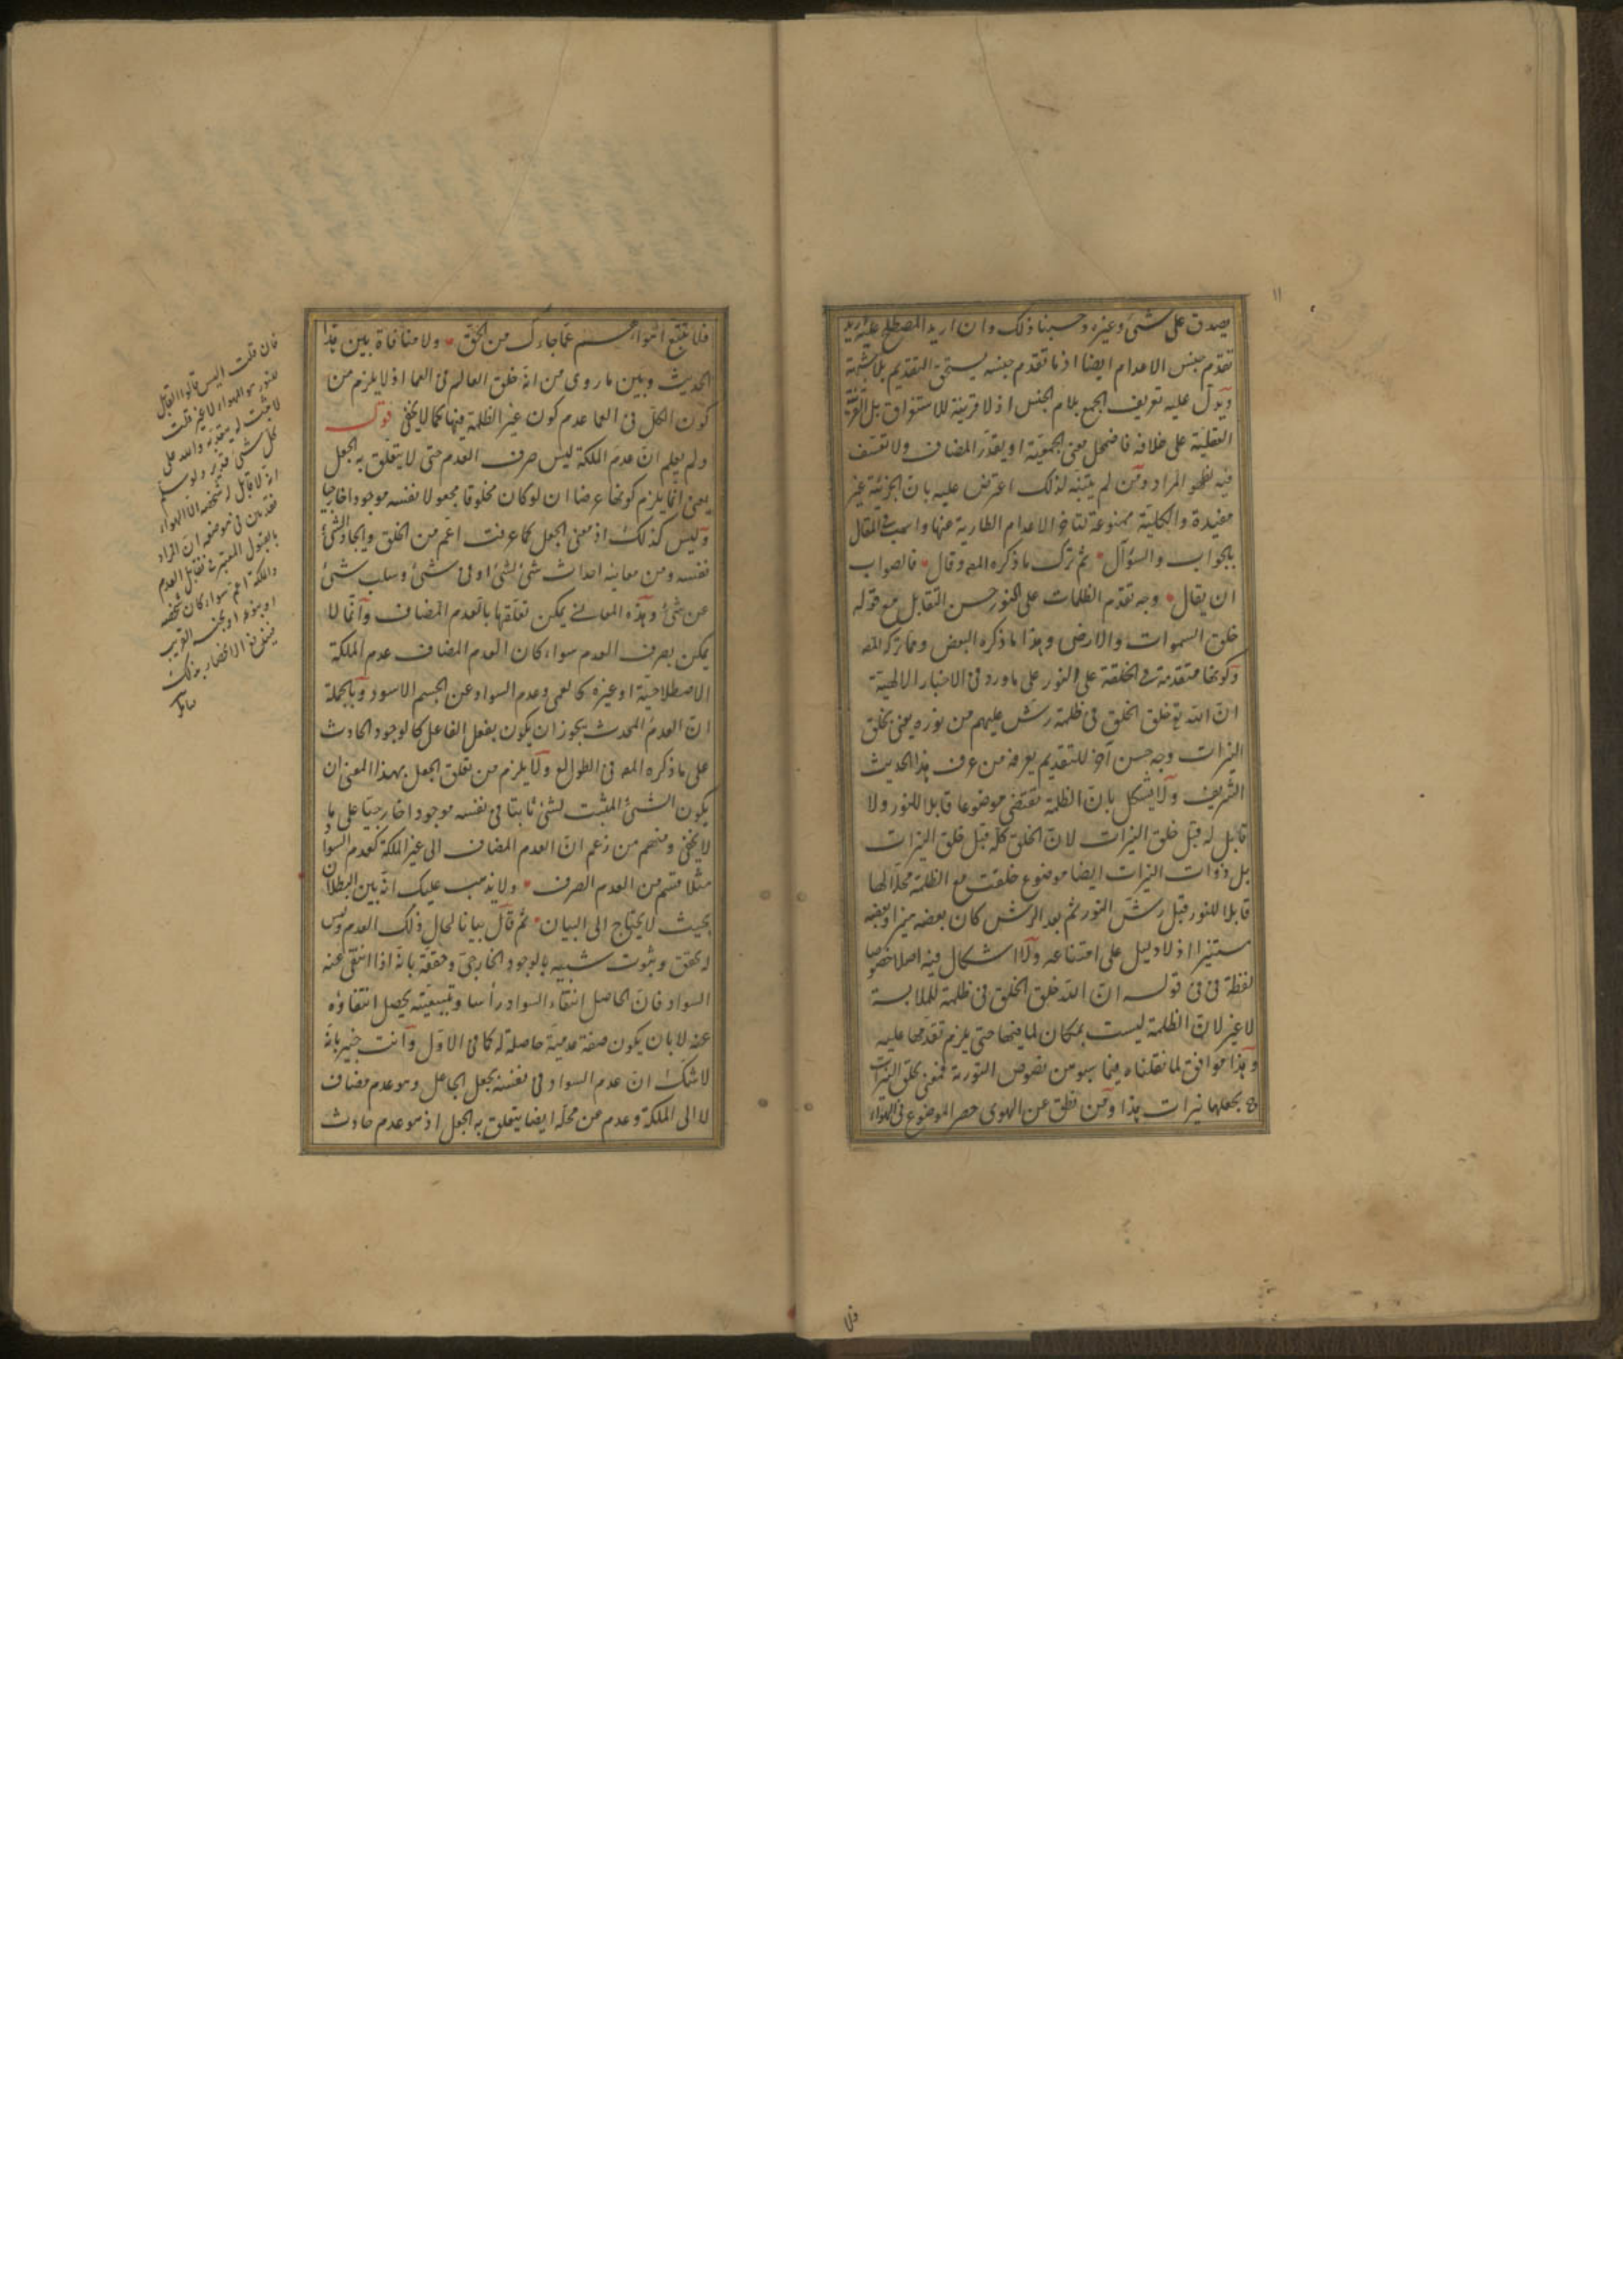 ١١
يصدق على شئ وغيره وحسبنا ذلك وان اريد المصطلح عليه يريد
تقدم جنس الاعدام ايضا اذ ما تقدم جنسه يستحق التقديم بلا شبهة
ويدل عليه تعريف الجمع بلام الجنس اذ لا قرينة للاستغراق بل القرينة
العقلية على خلافه فاضمحل معنى الجمعية او يقدر المضاف ولا تعسف
فيه لظهور المراد ومن لم يتنبه لذلك اعترض عليه بان الجزئية غير
مفيدة والكلية ممنوعة لتاخر الاعدام الطارية عنها واسهب في المقال
بالجواب والسؤال ثم ترك ما ذكره المصـ وقال فالصواب
ان يقال وجه تقدم الظلمات على النور حسن التقابل مع قوله
خلق السموات والارض وهذا ما ذكره البعض ومما تركه المصـ
وكونها متقدمة في الخلقة على النور على ما ورد في الاخبار الالهية
ان الله تع خلق الخلق في ظلمة رش عليهم من نوره يعنى بخلق
النيرات وجه حسن آخر للتقديم يعرفه من عرف هذا الحديث
الشريف ولا يشكل بان الظلمة تقتضى موضوعا قابلا للنور ولا
قابل له قبل خلق النيرات لان الخلق كله قبل خلق النيرات
بل ذوات النيرات ايضا موضوع خلقت مع الظلمة محلا لها
قابلا للنور قبل رش النور ثم بعد الرش كان بعضه نيرا وبعضه
مستنيرا اذ لا دليل على امتناعه ولا اشكال فيه اصلا خصوصا
لفظة في في قوله ان الله خلق الخلق في ظلمة للملابسة
لا غير لان الظلمة ليست بمكان لما فيها حتى يلزم تقدمها عليه
وهذا موافق لما نقلناه فيما سبق من نصوص التورية فمعنى خلق النيرات
ح جعلها نيرات هذا ومن نطق عن الهوى حصر الموضوع في الهواء
فلا
فلا تتبع اهواءهم عما جاءك من الحق ولا منافاة بين هذا
الحديث وبين ما روى من انه خلق العالم في العما اذ لا يلزم من
كون الكل في العما عدم كون غير الظلمة فيها كما لا يخفى قوله
ولم يعلم ان عدم الملكة ليس صرف العدم حتى لا يتعلق به الجعل
يعنى انما يلزم كونها عرضا ان لو كان مخلوقا مجعولا نفسه موجودا خارجيا
وليس كذلك اذ معنى الجعل كما عرفت اعم من الخلق وايجاد الشئ
نفسه ومن معانيه احداث شئ لشئ او في شئ وسلب شئ
عن شئ وهذه المعانى يمكن تعلقها بالعدم المضاف وانما لا
يمكن بصرف العدم سواء كان العدم المضاف عدم الملكة
الاصطلاحية او غيره كالعمى وعدم السواد عن الجسم الاسود وبالجملة
ان العدم المحدث يجوز ان يكون بفعل الفاعل كالوجود الحادث
على ما ذكره المصـ في الطوالع ولا يلزم من تعلق الجعل بهذا المعنى ان
يكون الشئ المثبت لشئ ثابتا في نفسه موجودا خارجيا على ما
لا يخفى ومنهم من زعم ان العدم المضاف الى غير الملكة كعدم السواد
مثلا قسم من العدم الصرف ولا يذهب عليك انه بين البطلان
بحيث لا يحتاج الى البيان ثم قال بيانا لحال ذلك العدم وليس
له تحقق وثبوت شبيه بالوجود الخارجى وحققه بانه اذا انتفى عنه
السواد فان الحاصل انتفاء السواد رأسا وتبعيته يحصل انتفاؤه
عنه لا بان يكون صفة عدمية حاصلة له كما في الاول وانت خبير بانه
لا شك ان عدم السواد في نفسه بجعل الجاعل وهو عدم مضاف
لا الى الملكة وعدم عن محله ايضا يتعلق به الجعل اذ هو عدم حادث
فان قلت اليس قالوا القابل
للنور هو الهواء لا غير قلت
لا يثبت له يعتد به والله على
كل شئ قدير ولو سلم
انه لا قابل له شخصه الا الهواء
فقد بين في موضعه ان المراد
بالقبول المعتبر في تقابل العدم
والملكة اعم سواء كان شخصه
او بنوعه او بجنسه القريب